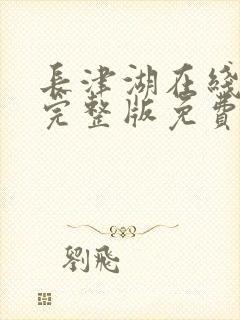 長津湖在綫
完整版免費
劉飛